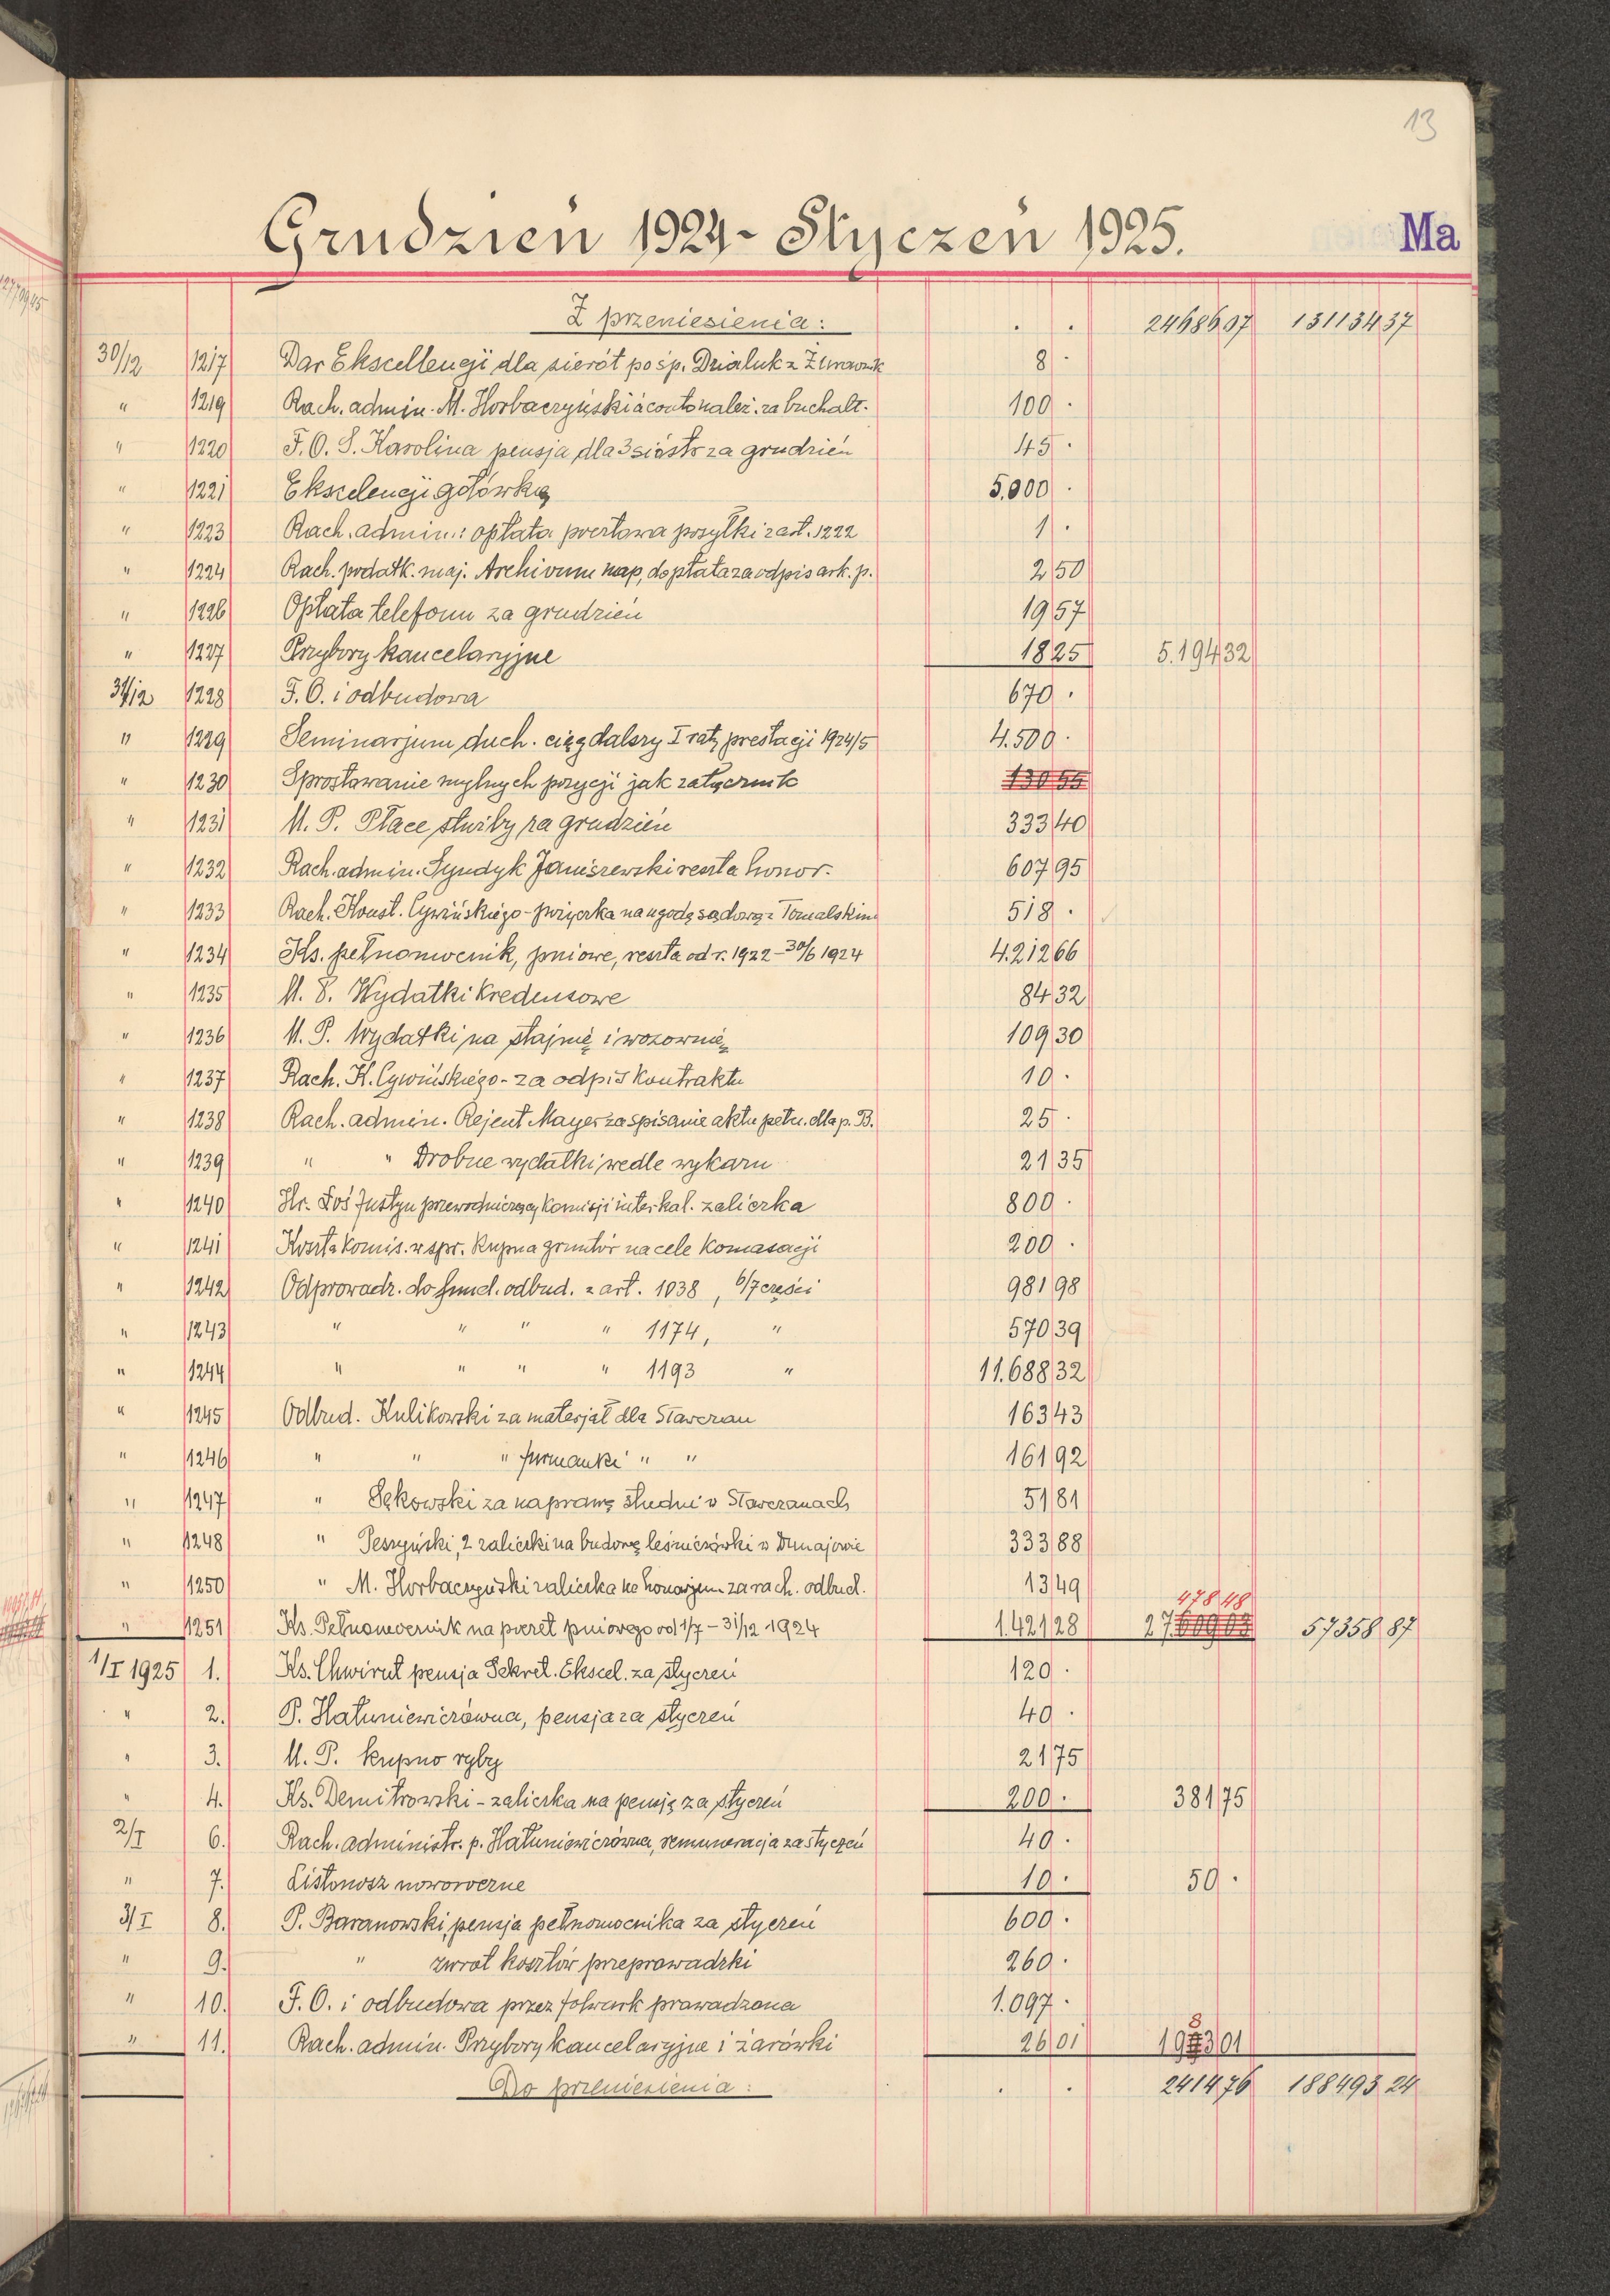 13
Grudzień 1924 - Styczeń 1925. Ma
Z przeniesienia: . . 24686 97 131134 37
30/12 1217 Dar Ekscellencji dla sierót po śp. Dzialuk z 8 .
" 1219 Rach. admin. M. Horbaczyński à conto należ. za buchalt. 100 .
" 1220 F. O. S. Karolina pensja dla 3 sióstr za grudzień 45 .
" 1221 Ekscelencji gotówką 5.000 .
" 1223 Rach. admin.: opłata pocztowa posyłki z art. 1222 1 .
" 1224 Rach. podatk. maj. Archivum map, dopłata za odpis ark. p. 2 50
" 1226 Opłata telefonu za grudzień 19 57
" 1227 Przybory kancelaryjne 18 25 5.194 32
31/12 1228 F. O. i odbudowa 670 .
" 1229 Seminarjum duch. ciąg dalszy I raty prestacji 1924/5 4.500 .
" 1230 Sprostowanie mylnych pozycji jak załącznik 130 55
" 1231 U. P. Płace służby za grudzień 333 40
" 1232 Rach. admin. Syndyk Janiszewski reszta honor. 607 95
" 1233 Rach. Konst. Cywińskiego - pożyczka na ugodę sądową z Tomalskim 518 .
" 1234 Ks. pełnomocnik, pniowe, reszta od r. 1922 - 30/6 1924 4.212 66
" 1235 U. P. Wydatki kredensowe 84 32
" 1236 U. P. Wydatki na stajnię i wozownię 109 30
" 1237 Rach. K. Cywińskiego - za odpis kontraktu 10 .
" 1238 Rach. admin. Rejent Mayer za spisanie aktu pełn. dla p. B. 25 .
" 1239 " " Drobne wydatki wedle wykazu 21 35
" 1240 Hr. Łoś Justyn przewodniczący komisji interkal. zaliczka 800 .
" 1241 Koszta komis. w spr. kupna gruntów na cele komasacji 200 .
" 1242 Odprowadz. do fund. odbud. z art. 1038, 6/7 części 981 98
" 1243 " " " " 1174, " 570 39
" 1244 " " " " 1193 " 11.688 32
" 1245 Odbud. Kulikowski za materjał dla Stawczan 163 43
" 1246 " " " furmanki " " 161 92
" 1247 " Sękowski za naprawę studni w Stawczanach 51 81
" 1248 " Peszyński, 2 zaliczki na budowę leśniczówki w Dunajowie 333 88
" 1250 " M. Horbaczyński zaliczka na honorjum za rach. odbud. 13 49
478 48
" 1251 Ks. Pełnomocnik na poczet pniowego od 1/7 - 31/12 1924 1.421 28 27 57358 87
1/I 1925 1. Ks. Chwirut pensja Sekret. Ekscel. za styczeń 120 .
" 2. P. Hatuniewiczówna, pensja za styczeń 40 .
" 3. U. P. kupno ryby 21 75
" 4. Ks. Demitrowski - zaliczka na pensję za styczeń 200 . 381 75
2/I 6. Rach. administr. p. Hatuniewiczówna, remuneracja za styczeń 40 .
" 7. Listonosz noworoczne 10 . 50 .
3/I 8. P. Baranowski, pensja pełnomocnika za styczeń 600 .
" 9. " zwrot kosztów przeprowadzki 260 .
" 10. F. O. i odbudowa przez folwark prowadzona 1.097 .
" 11. Rach. admin. Przybory kancelaryjne i żarówki 26 01 1983 01
Do przeniesienia: . . 2414 76 188493 24